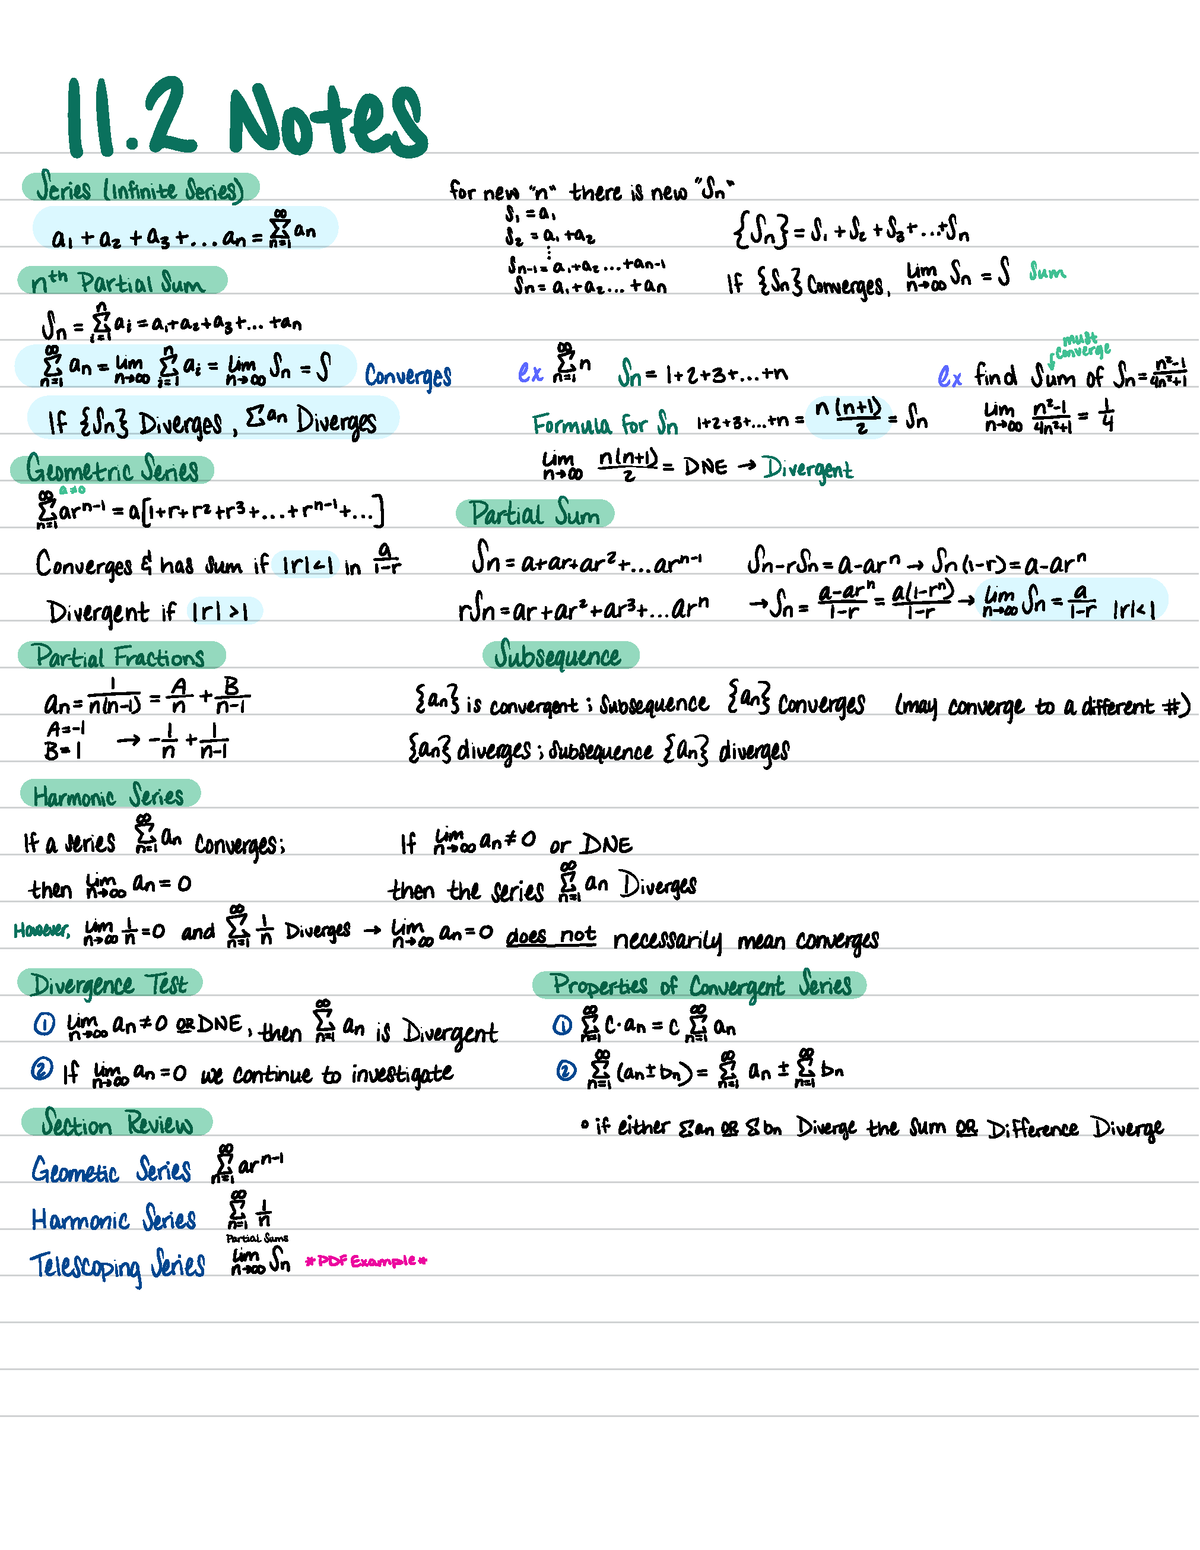 11.2 Notes
Series (Infinite Series)
a₁ + a₂ + a₃ + ... aₙ = ∑ₙ₌₁^∞ aₙ
for new "n" there is new "Sₙ"
S₁ = a₁
S₂ = a₁ + a₂
⋮
Sₙ₋₁ = a₁+a₂...+aₙ₋₁
Sₙ = a₁+a₂...+aₙ
{Sₙ} = S₁ + S₂ + S₃ + ... + Sₙ
If {Sₙ} Converges, lim n→∞ Sₙ = S Sum
nth Partial Sum
Sₙ = ∑ᵢ₌₁ⁿ aᵢ = a₁+a₂+a₃+... +aₙ
∑ₙ₌₁^∞ aₙ = lim n→∞ ∑ᵢ₌₁ⁿ aᵢ = lim n→∞ Sₙ = S Converges
If {Sₙ} Diverges, ∑aₙ Diverges
ex ∑ₙ₌₁^∞ n Sₙ = 1+2+3+...+n
Formula for Sₙ 1+2+3+...+n = n(n+1)/2 = Sₙ
lim n→∞ n(n+1)/2 = DNE → Divergent
must
converge
ex find Sum of Sₙ = n²-1/4n²+1
lim n→∞ n²-1/4n²+1 = 1/4
Geometric Series
a≠0
∑ₙ₌₁^∞ arⁿ⁻¹ = a[1+r+r²+r³+...+rⁿ⁻¹+...]
Converges & has sum if |r|<1 in a/1-r
Divergent if |r|>1
Partial Sum
Sₙ = a+ar+ar²+...arⁿ⁻¹
rSₙ = ar+ar²+ar³+...arⁿ
Sₙ-rSₙ = a-arⁿ → Sₙ(1-r) = a-arⁿ
→ Sₙ = a-arⁿ/1-r = a(1-rⁿ)/1-r → lim n→∞ Sₙ = a/1-r |r|<1
Partial Fractions
aₙ = 1/n(n-1) = A/n + B/n-1
A=-1
B=1 → -1/n + 1/n-1
Subsequence
{aₙ} is convergent ; Subsequence {aₙ} Converges (may converge to a different #)
{aₙ} diverges ; Subsequence {aₙ} diverges
Harmonic Series
If a series ∑ₙ₌₁^∞ aₙ Converges;
then lim n→∞ aₙ = 0
If lim n→∞ aₙ ≠ 0 or DNE
then the series ∑ₙ₌₁^∞ aₙ Diverges
However, lim n→∞ 1/n = 0 and ∑ₙ₌₁^∞ 1/n Diverges → lim n→∞ aₙ = 0 does not necessarily mean converges
Divergence Test
① lim n→∞ aₙ ≠ 0 OR DNE, then ∑ₙ₌₁^∞ aₙ is Divergent
② If lim n→∞ aₙ = 0 we continue to investigate
Properties of Convergent Series
① ∑ₙ₌₁^∞ C·aₙ = C ∑ₙ₌₁^∞ aₙ
② ∑ₙ₌₁^∞ (aₙ ± bₙ) = ∑ₙ₌₁^∞ aₙ ± ∑ₙ₌₁^∞ bₙ
• if either ∑aₙ OR ∑bₙ Diverge the sum OR Difference Diverge
Section Review
Geometic Series ∑ₙ₌₁^∞ arⁿ⁻¹
Harmonic Series ∑ₙ₌₁^∞ 1/n
Partial Sums
Telescoping Series lim n→∞ Sₙ *PDF Example*